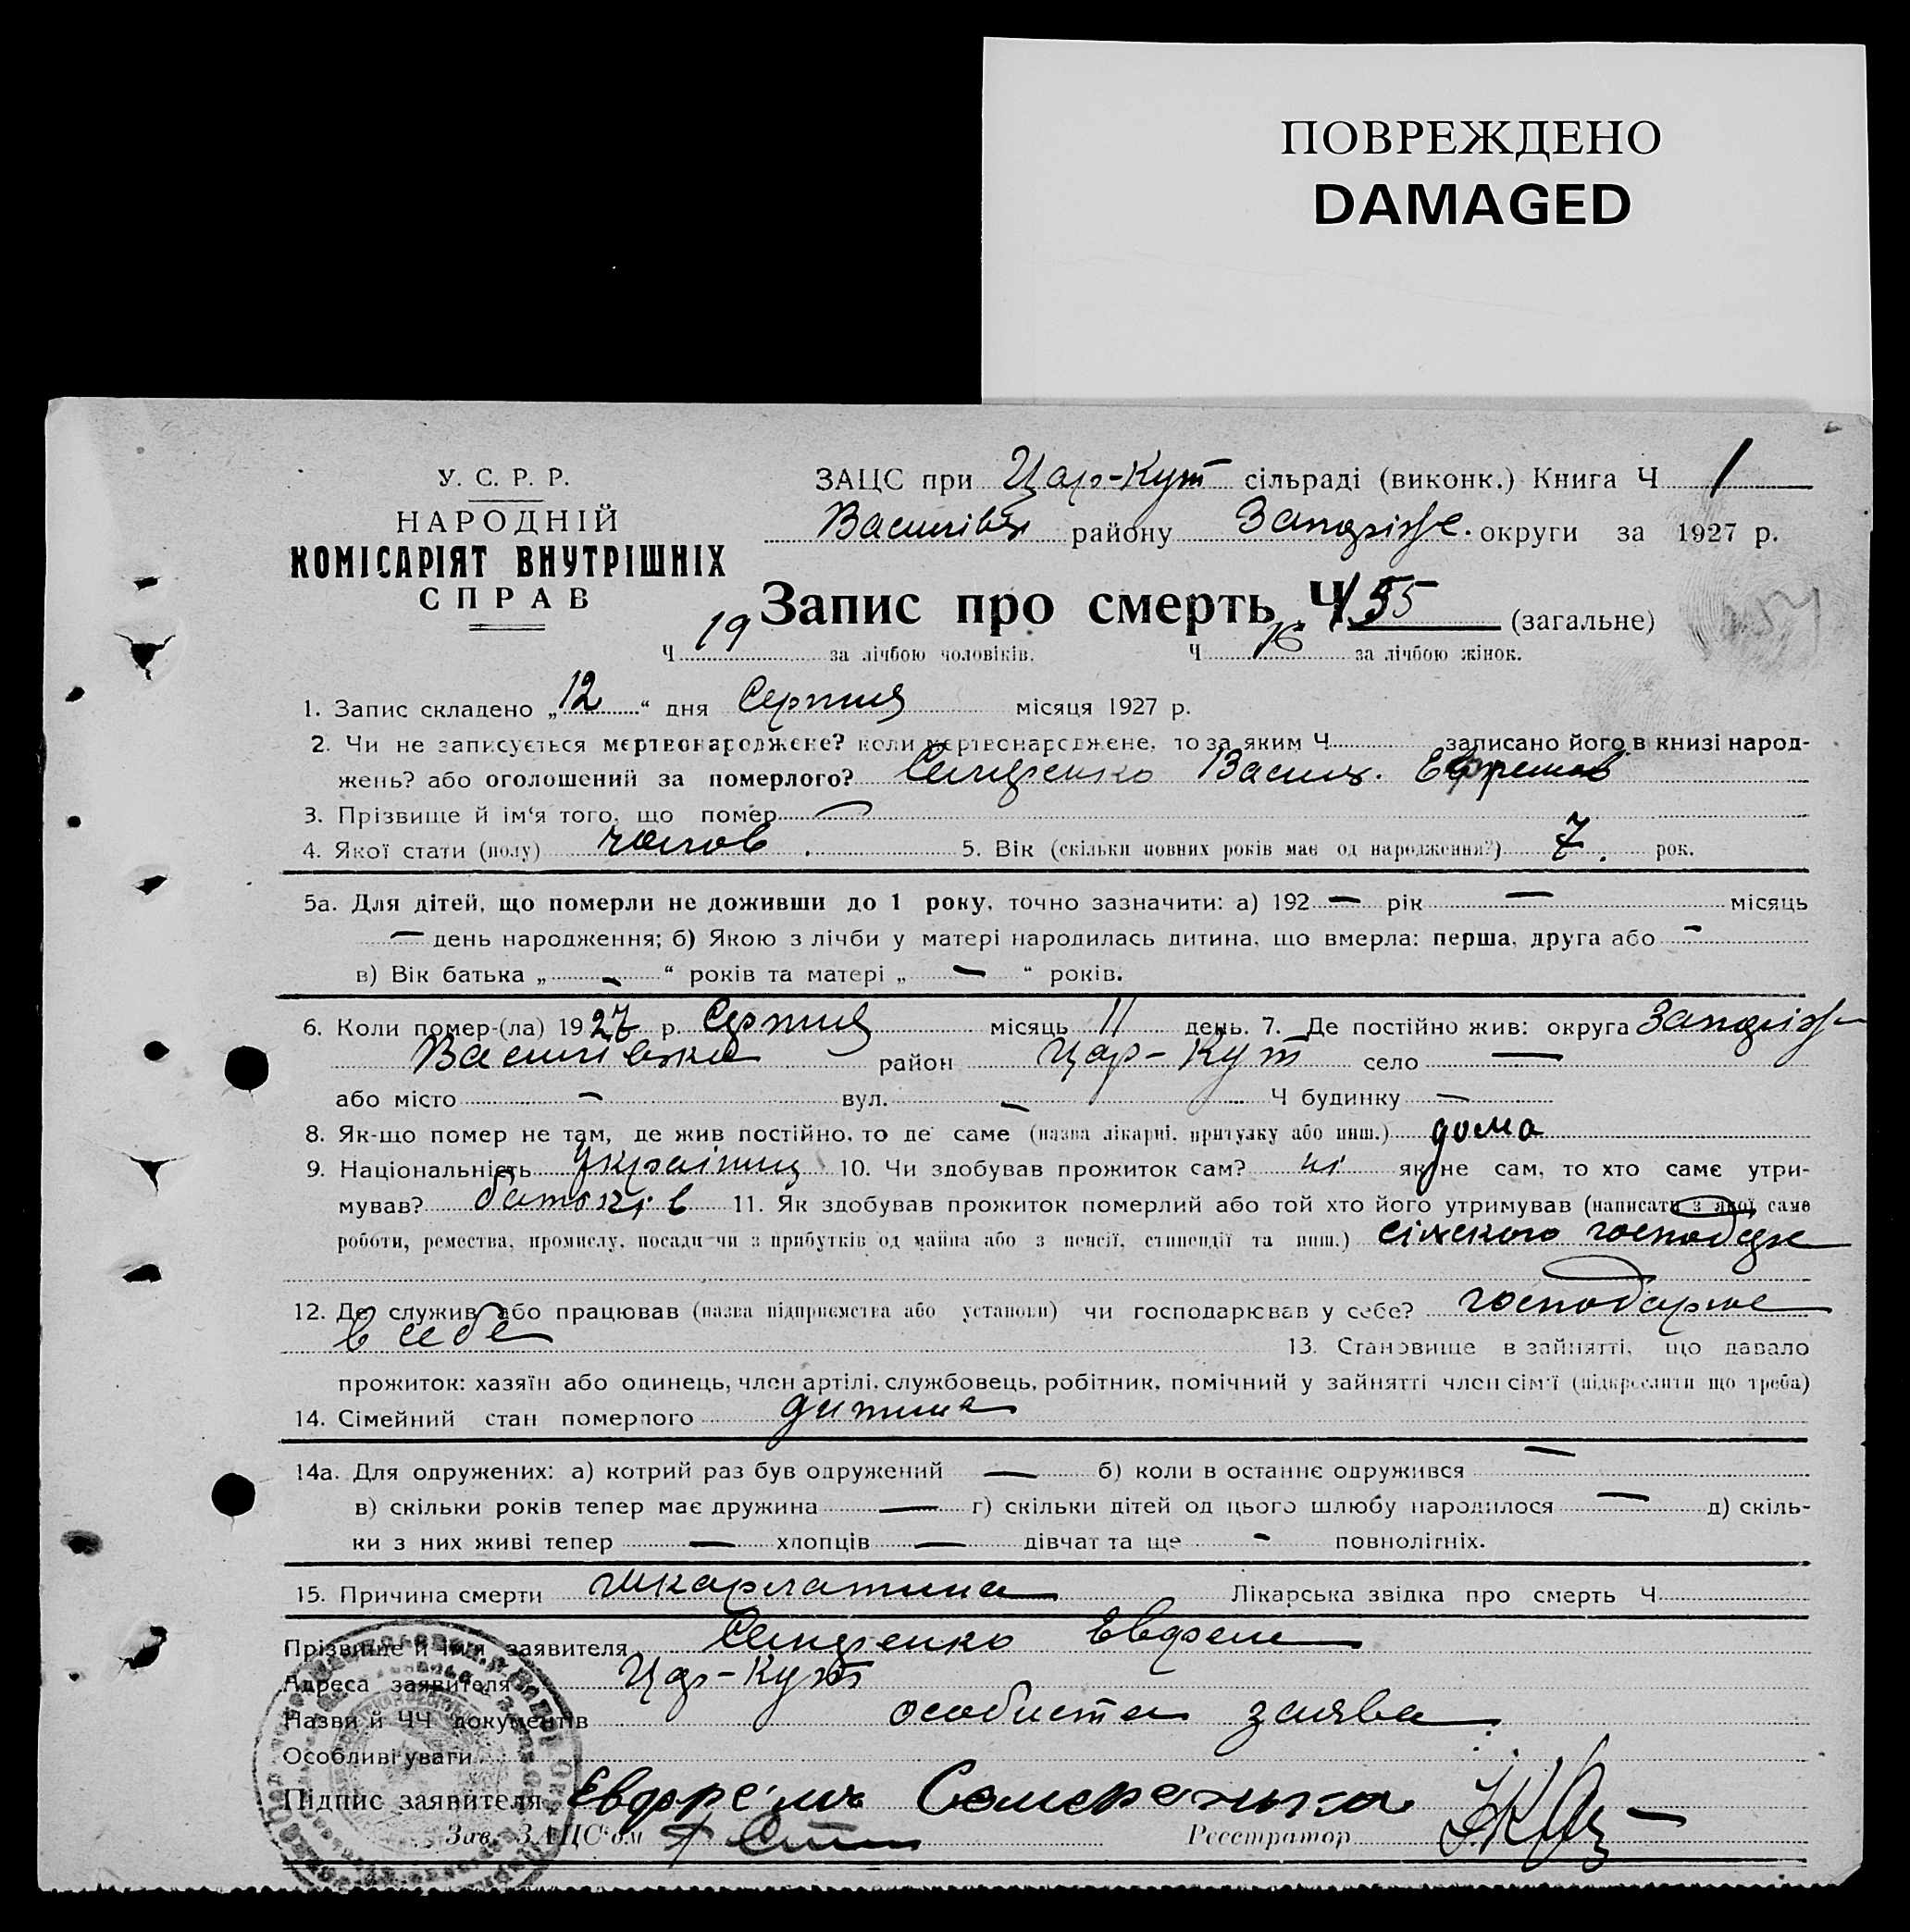 ПОВРЕЖДЕНО
DAMAGED
У. С. Р. Р.
НАРОДНІЙ
КОМІСАРІЯТ ВНУТРІШНІХ
СПРАВ
ЗАЦС при Цар-Кут сільраді (виконк.) Книга Ч 1
Василівськ району Запоріж. округи за 1927 р.
Запис про смерть Ч (загальне)
Ч 19 за лічбою чоловіків. Ч 16 за лічбою жінок.
1. Запис складено „12“ дня Серпня місяця 1927 р.
2. Чи не записується мертвонароджене? коли мертвонароджене, то за яким Ч записано його в книзі народ-
жень? або оголошений за померлого? Васил. Ефремов
3. Прізвище й ім‘я того, що помер
4. Якої стати (полу) чолов 5. Вік (скільки повних років має од народження?) 7. рок.
5а. Для дітей, що померли не доживши до 1 року, точно зазначити: а) 192 — рік — місяць
— день народження; б) Якою з лічби у матері народилась дитина, що вмерла: перша, друга або -
в) Вік батька „ - “ років та матері „ - “ років.
6. Коли помер-(ла) 1927 р. Серпня місяць 11 день. 7. Де постійно жив: округа Запоріж
Василівка район Цар-Кут село —
або місто - вул. - Ч будинку —
8. Як-що помер не там, де жив постійно, то де саме (назва лікарні, притулку або инш.) дома
9. Національність Українец 10. Чи здобував прожиток сам? ні як не сам, то хто саме утри-
мував? батьків 11. Як здобував прожиток померлий або той хто його утримував (написати з якої саме
роботи, ремества, промислу, посади чи з прибутків од майна або з пенсії, стипендії та инш.) сілского господар
12. Де служив або працював (назва підприємства або установи) чи господарював у себе? господарює
в себе 13. Становище в зайнятті, що давало
прожиток: хазяїн або одинець, член артілі, службовець, робітник, помічний у зайнятті член сім‘ї (підкреслити що треба)
14. Сімейний стан померлого дитина
14а. Для одружених: а) котрий раз був одружений — б) коли в останнє одружився —
в) скільки років тепер має дружина — г) скільки дітей од цього шлюбу народилося — д) скіль-
ки з них живі тепер — хлопців — дівчат та ще - повнолітніх.
15. Причина смерти шкарлатина Лікарська звідка про смерть Ч
Прізвище й ім‘я заявителя Евфрем
Адреса заявителя Цар-Кут
Назви й ЧЧ документів особиста заява
Особливі уваги
Підпис заявителя
Зав. ЗАЦС‘ом Реєстратор